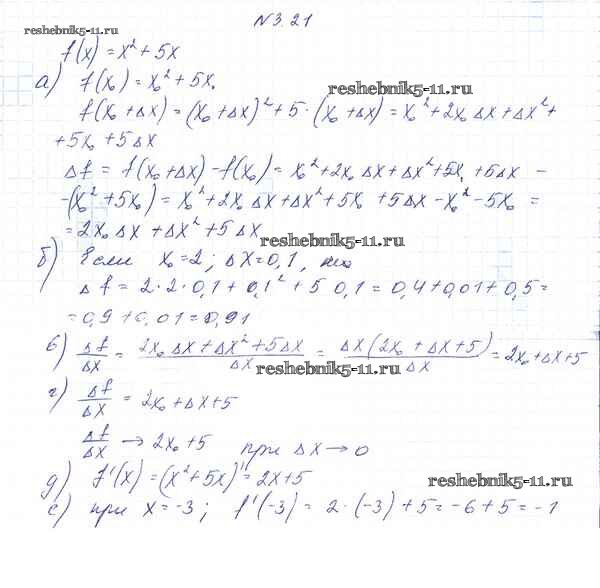 № 3.21
reshebnik5-11.ru
f(x) = x² + 5x
а) f(x₀) = x₀² + 5x₀
reshebnik5-11.ru
f(x₀ + Δx) = (x₀ + Δx)² + 5·(x₀ + Δx) = x₀² + 2x₀ Δx + Δx² +
+ 5x₀ + 5Δx
Δf = f(x₀ + Δx) - f(x₀) = x₀² + 2x₀ Δx + Δx² + 5x₀ + 5Δx -
-(x₀² + 5x₀) = x₀² + 2x₀ Δx + Δx² + 5x₀ + 5Δx - x₀² - 5x₀ =
= 2x₀ Δx + Δx² + 5Δx
reshebnik5-11.ru
б) Если x₀ = 2; Δx = 0,1, то
Δf = 2·2·0,1 + 0,1² + 5 0,1 = 0,4 + 0,01 + 0,5 =
= 0,9 + 0,01 = 0,91
в) Δf/Δx = (2x₀ Δx + Δx² + 5Δx)/Δx = Δx(2x₀ + Δx + 5)/Δx = 2x₀ + Δx + 5
reshebnik5-11.ru
г) Δf/Δx = 2x₀ + Δx + 5
Δf/Δx → 2x₀ + 5 при Δx → 0
д) f'(x) = (x² + 5x)' = 2x + 5
reshebnik5-11.ru
е) при x = -3; f'(-3) = 2·(-3) + 5 = -6 + 5 = -1